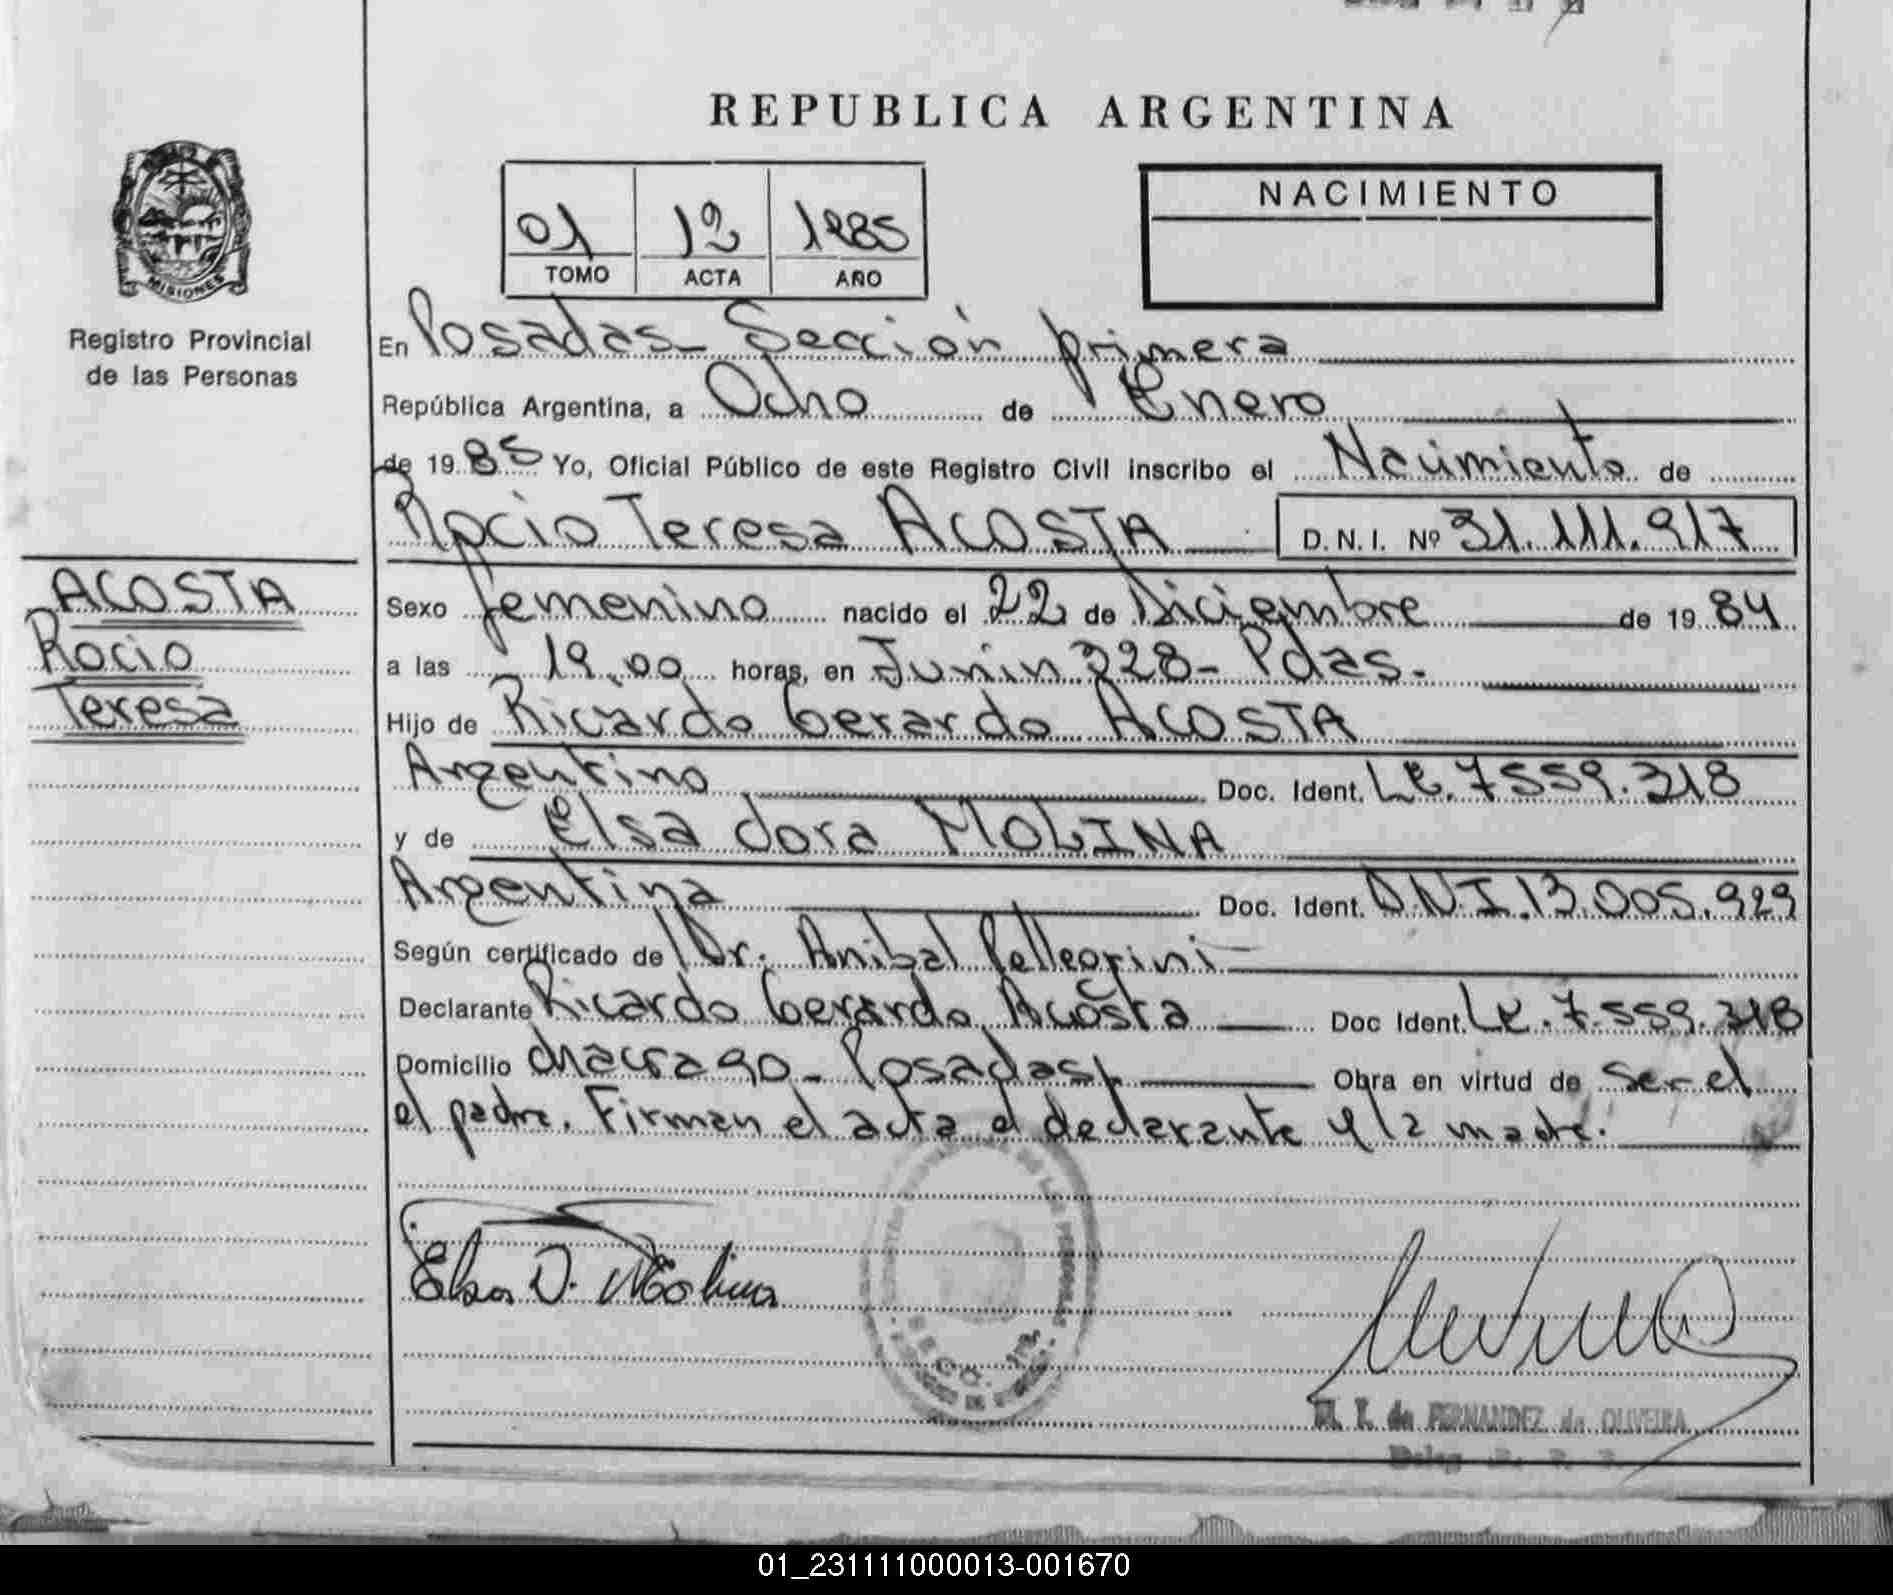 REPUBLICA ARGENTINA
MISIONES
Registro Provincial
de las Personas
01 12 1985
TOMO ACTA AÑO
NACIMIENTO
En Posadas - Sección primera
República Argentina, a Ocho de Enero
de 1985 Yo, Oficial Público de este Registro Civil inscribo el Nacimiento de
Rocio Teresa ACOSTA D.N.I. Nº 31.111.917
ACOSTA
Rocio
Teresa
Sexo femenino nacido el 22 de Diciembre de 1984
a las 19,00 horas, en Junin 328 - Pdas.
Hijo de Ricardo Gerardo ACOSTA
Argentino Doc. Ident. L.E. 7559.318
y de Elsa dora MOLINA
Argentina Doc. Ident. D.N.I. 13.005.929
Según certificado de Dr. Anibal Pellegrini
Declarante Ricardo Gerardo Acosta Doc Ident. L.E. 7.559.318
Domicilio chacra 90 - Posadas Obra en virtud de ser el
el padre. Firman el acta el declarante y la madre.
Elsa D. Molina
DE FERNANDEZ de OLIVEIRA
01_231111000013-001670